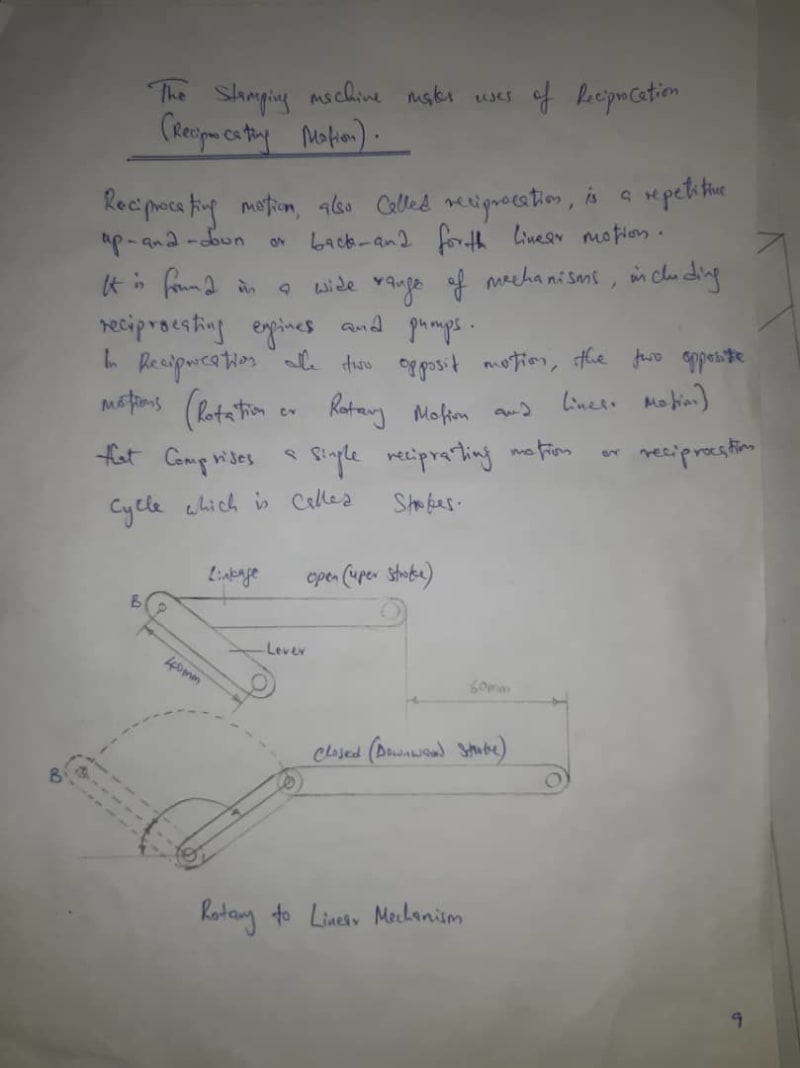 The Stamping machine makes uses of Reciprocation
(Reciprocating Motion).
Reciprocating motion, also Called reciprocation, is a repetitive
up-and-down or back-and forth linear motion.
It is found in a wide range of mechanisms, including
reciprocating engines and pumps.
In Reciprocation the two opposit motion, the two opposite
motions (Rotation or Rotary Motion and Linear Motion)
that Comprises a Single reciprating motion or reciprocation
Cycle which is Called Strokes.
Linkage open (uper stroke)
B
Lever
40mm
60mm
closed (Downward stroke)
B
Rotary to Linear Mechanism
9